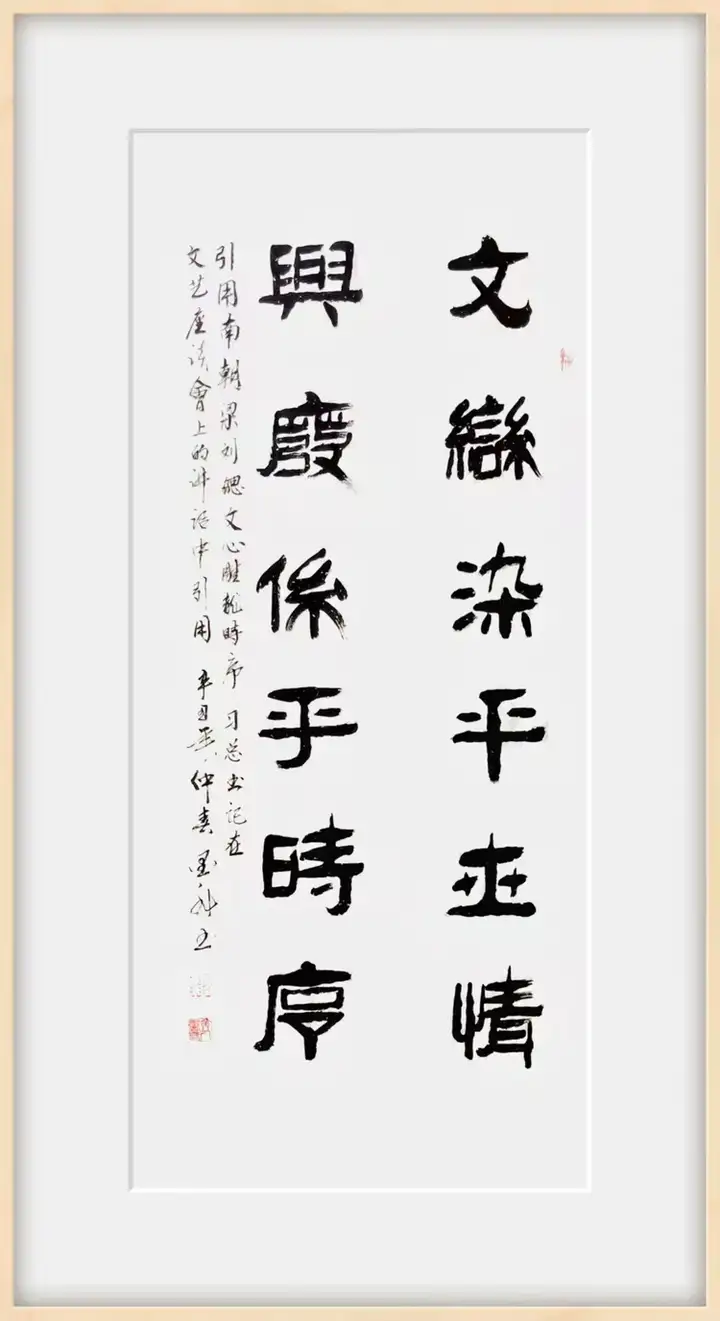 文變染平世情
興廢係乎時序
引用南朝梁刘勰文心雕龍時序 习总书记在
文艺座谈會上的讲话中引用 辛丑 仲春 书